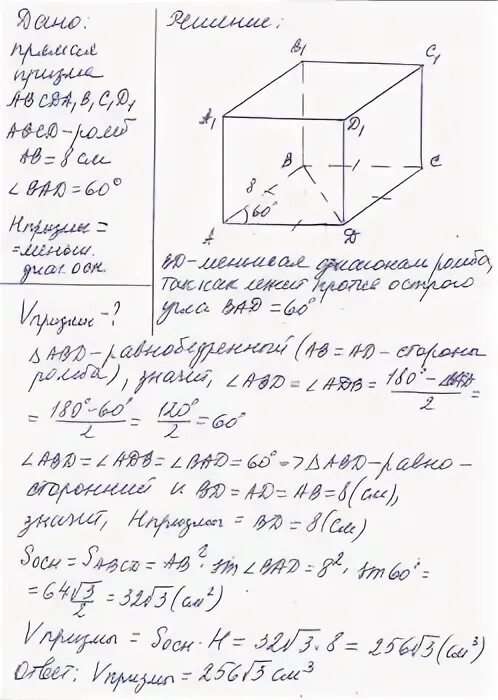 Дано:
прямая
призма
ABCDA₁B₁C₁D₁
ABCD-ромб
AB = 8 см
∠BAD = 60°
H призмы =
= меньш.
диаг. осн.
V призмы - ?
Решение:
B₁
C₁
A₁
D₁
B
C
8
60°
A
D
BD - меньшая диагональ ромба,
так как лежит против острого
угла BAD = 60°
△ABD - равнобедренный (AB = AD - стороны
ромба), значит, ∠ABD = ∠ADB = (180° - ∠BAD)/2 =
= (180° - 60°)/2 = 120°/2 = 60°
∠ABD = ∠ADB = ∠BAD = 60° => △ABD - равно-
сторонний и BD = AD = AB = 8 (см),
значит, H призмы = BD = 8 (см)
Sосн = S ABCD = AB² · sin ∠BAD = 8² · sin 60° =
= 64√3/2 = 32√3 (см²)
V призмы = Sосн · H = 32√3 · 8 = 256√3 (см³)
Ответ: V призмы = 256√3 см³